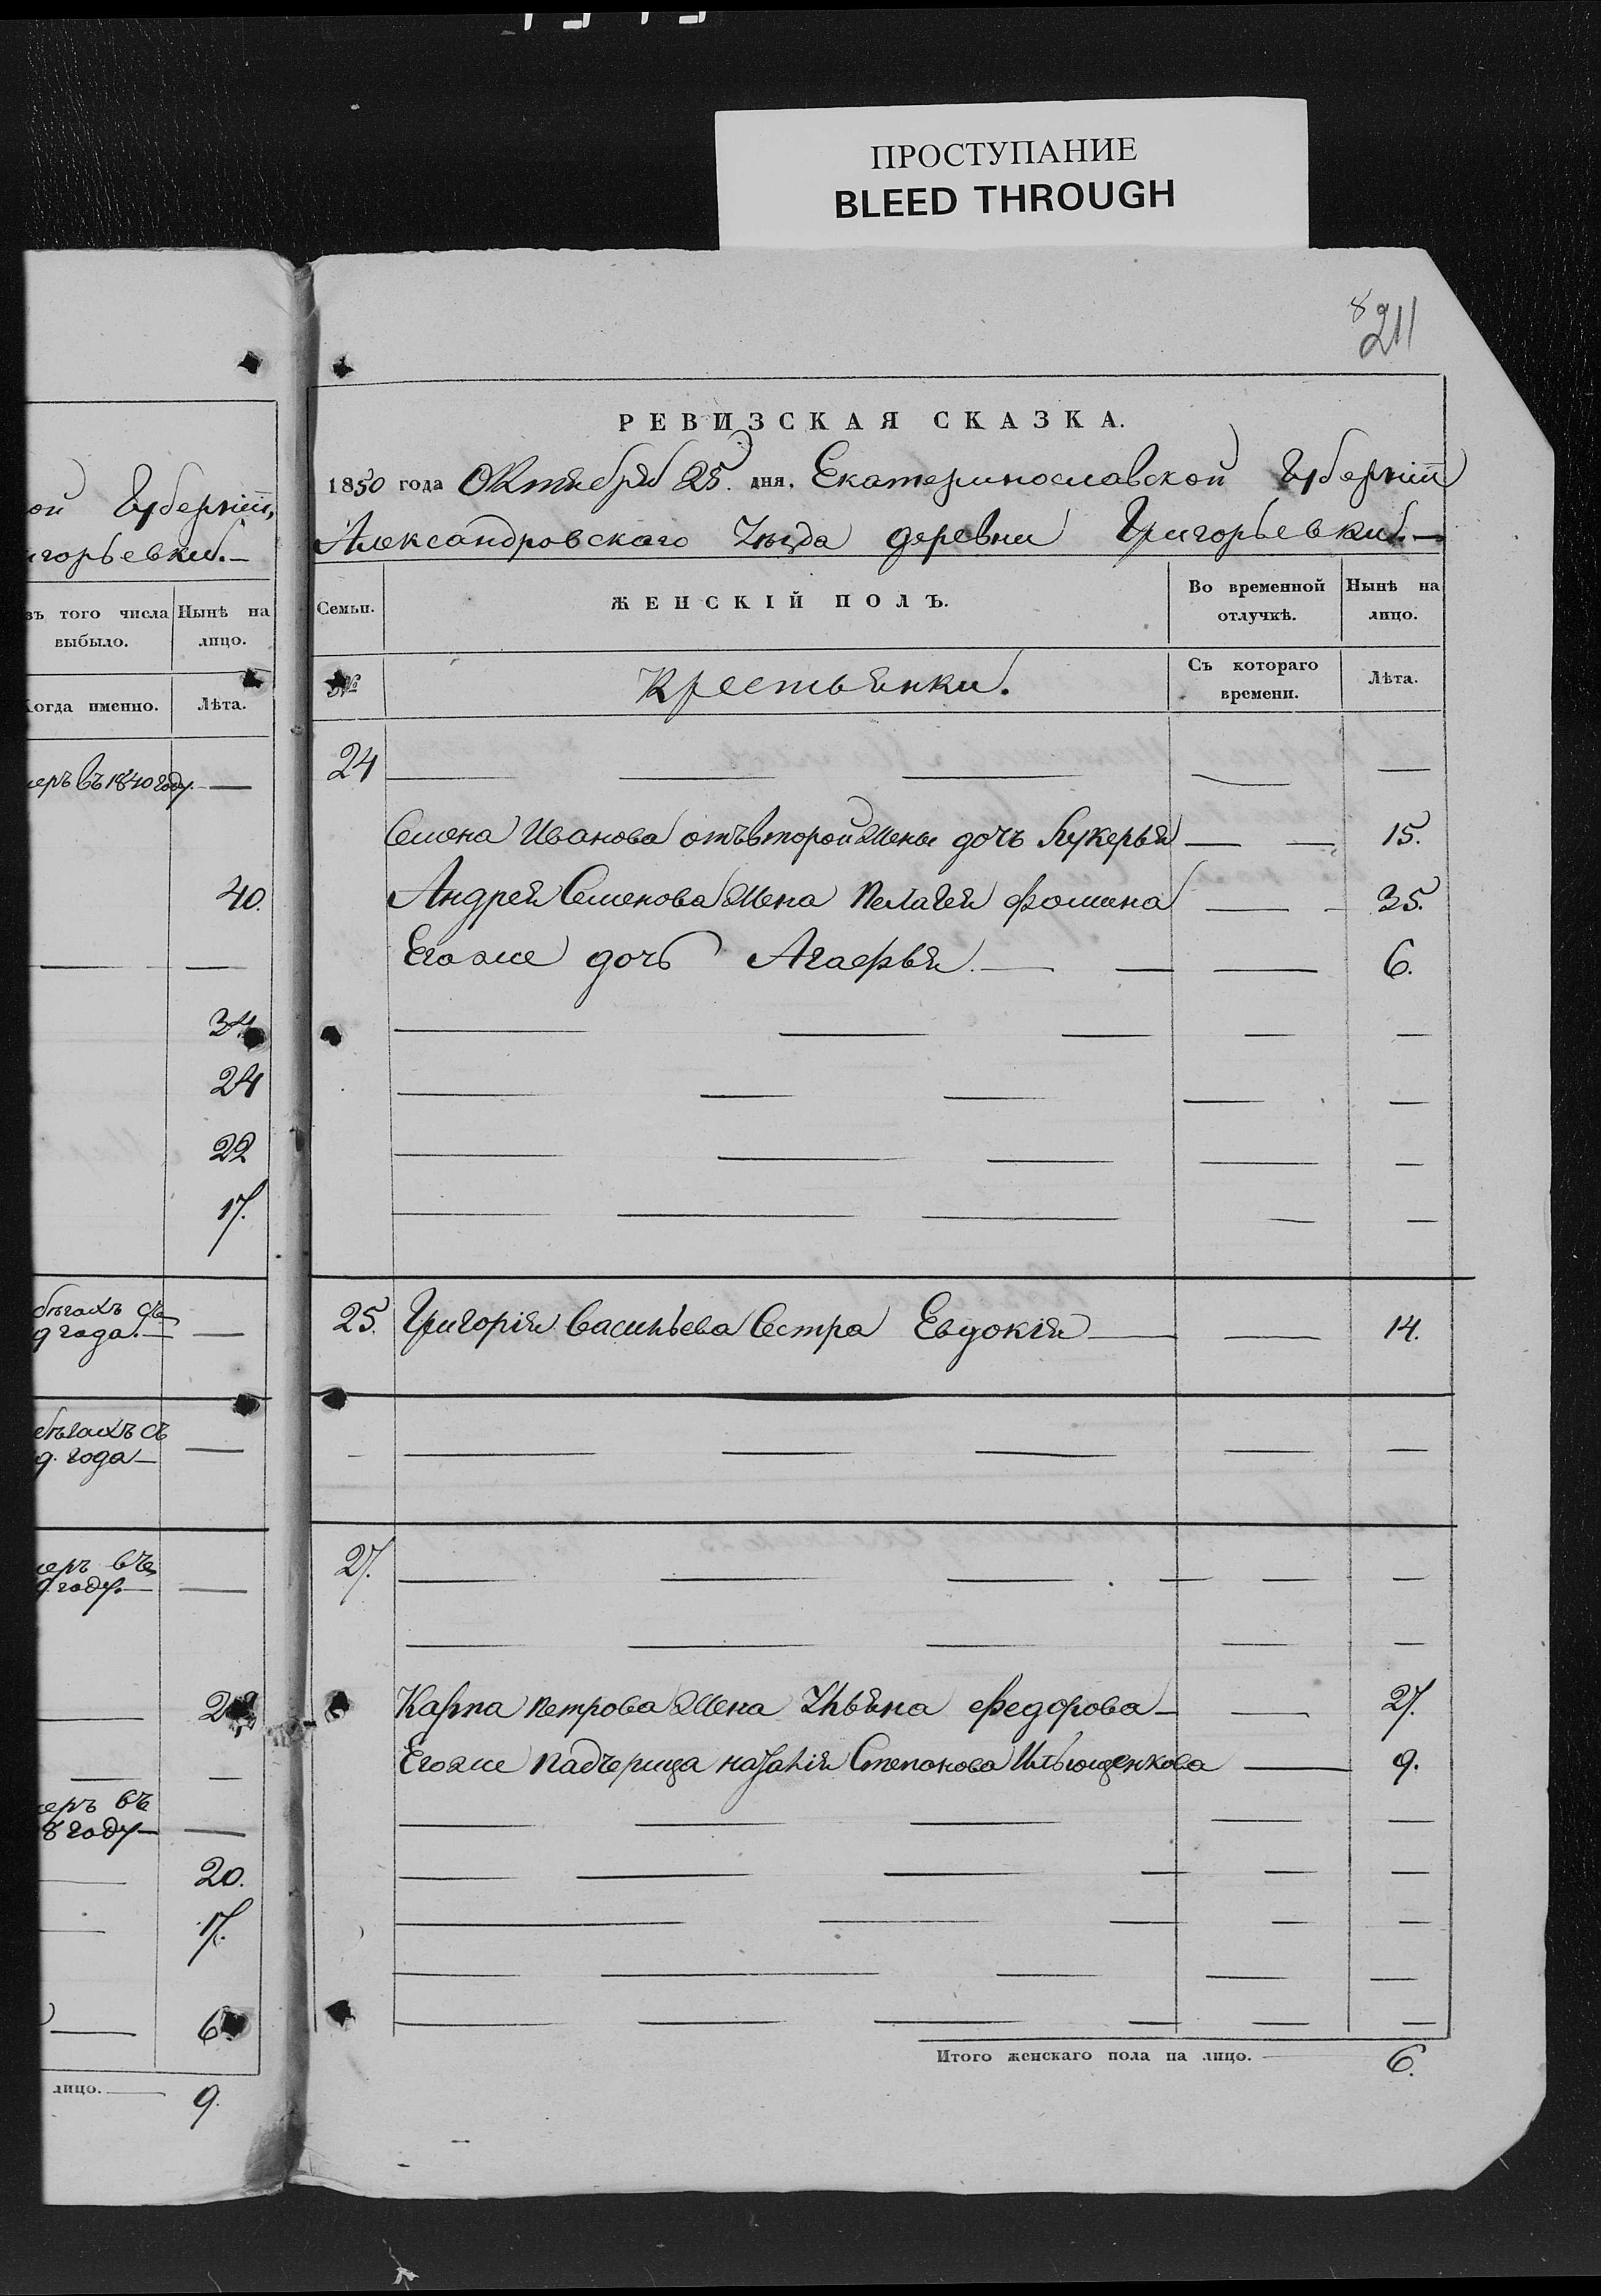 ПРОСТУПАНИЕ
BLEED THROUGH
8
211
ой Губерніи,
игорьевки.
зъ того числа выбыло.
Нынѣ на лицо.
Когда именно.
Лѣта.
меръ въ 1840 году. —
40.
34
24
22
17.
бѣгахъ съ
д года. —
бѣгахъ съ
д. года —
меръ въ
году. —
меръ въ
8 году —
20.
17.
6.
лицо. — 9.
РЕВИЗСКАЯ СКАЗКА.
1850 года Октября 25. дня. Екатеринославской Губерніи
Александровскаго Уѣзда деревни Григорьевки. —
Семьи.
ЖЕНСКІЙ ПОЛЪ.
Во временной отлучкѣ.
Нынѣ на лицо.
№
Крестьянки.
Съ котораго времени.
Лѣта.
24 — — — — —
Семена Иванова отъ второй жены дочь Лукерья — — 15.
Андрея Семенова жена Пелагея Фомина — — 35.
Егоже дочь Агафья. — — — 6.
25. Григорія Васильева Сестра Евдокія — — 14.
27. — — — — —
Карпа Петрова жена Ульяна Федорова — — 27.
Егоже падчерица Наталія Степанова Ильющенкова — 9.
Итого женскаго пола на лицо. — 6.